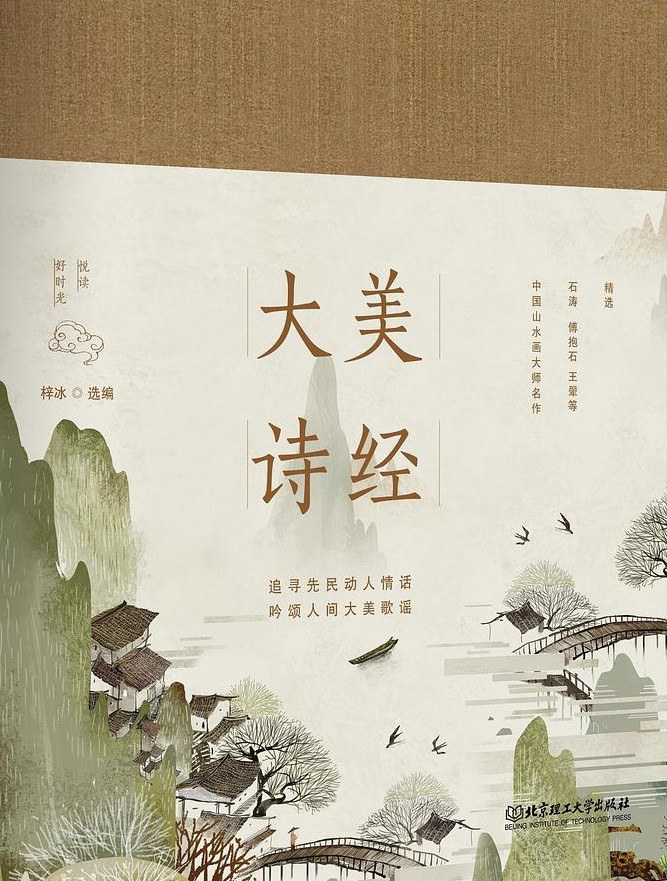 悦读
好时光
梓冰◎选编
大美
诗经
精选
石涛 傅抱石 王翚等
中国山水画大师名作
追寻先民动人情话
吟颂人间大美歌谣
北京理工大学出版社
BEIJING INSTITUTE OF TECHNOLOGY PRESS